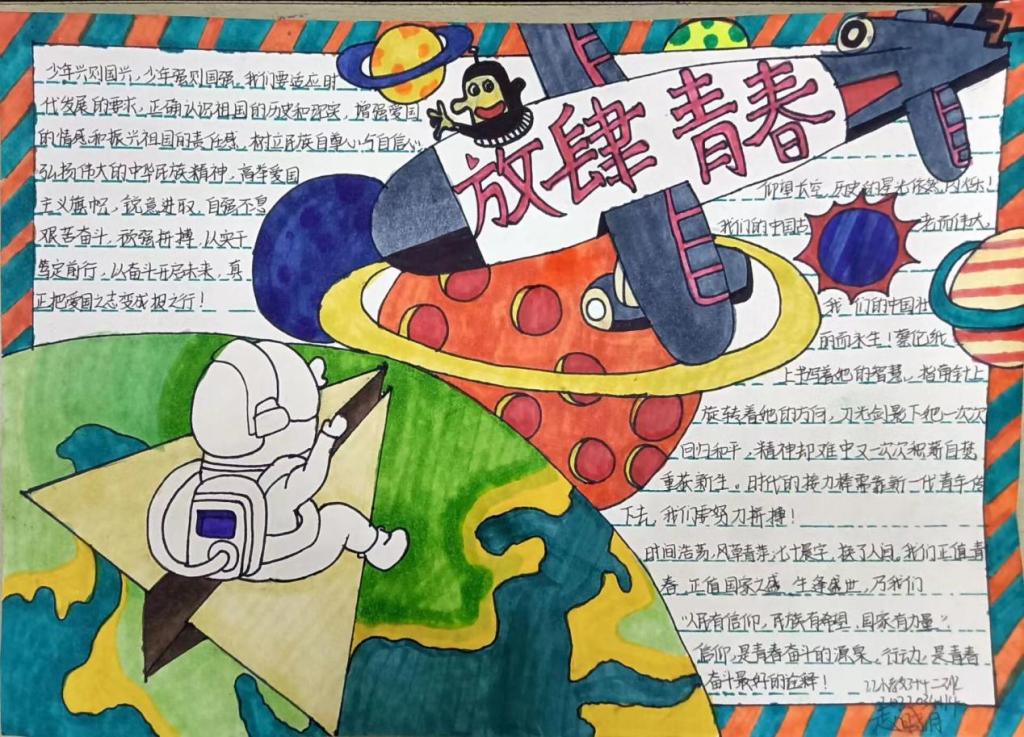 放肆青春
少年兴则国兴，少年强则国强，我们要适应时
代发展的要求，正确认识祖国的历史和现实，增强爱国
的情感和振兴祖国的责任感，树立民族自尊心与自信心，
弘扬伟大的中华民族精神，高举爱国
主义旗帜，锐意进取，自强不息
艰苦奋斗，顽强拼搏，以实干
笃定前行，以奋斗开启未来，真
正把爱国之志变成报之行！
仰望太空，历史的星光依然闪烁！
我们的中国古 老而伟大，
我们的中国壮
丽而永生！
上书写着她的智慧，指南针上
旋转着她的方向，刀光剑影下她一次次
回归和平，精神却难中又一次次
重获新生。时代的接力棒需靠新一代青年
下去，我们要努力拼搏！
时间浩荡，风草青芽，七十载字，换了人间，我们正值青
春，正值国家之盛，生逢盛世，乃我们
“人民有信仰，民族有希望，国家有力量”。
信仰，是青春奋斗的源泉，行动，是青春
奋斗最好的诠释！